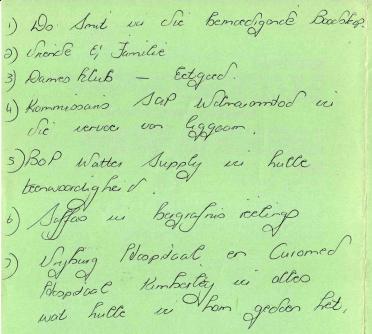 1) Ds Smit vir die bemoedigende Boodskap
2) Vriende & Familie
3) Dames klub — Eetgoed.
4) Kommissaris SAP vir
die vervoer van liggaam.
5) BoP Water Supply vir hulle
teenwoordigheid.
6) Saffas vir begrafnis reelings
7) Vryburg Hospitaal en Curomed
Hospitaal Kimberley vir alles
wat hulle vir hom gedoen het.